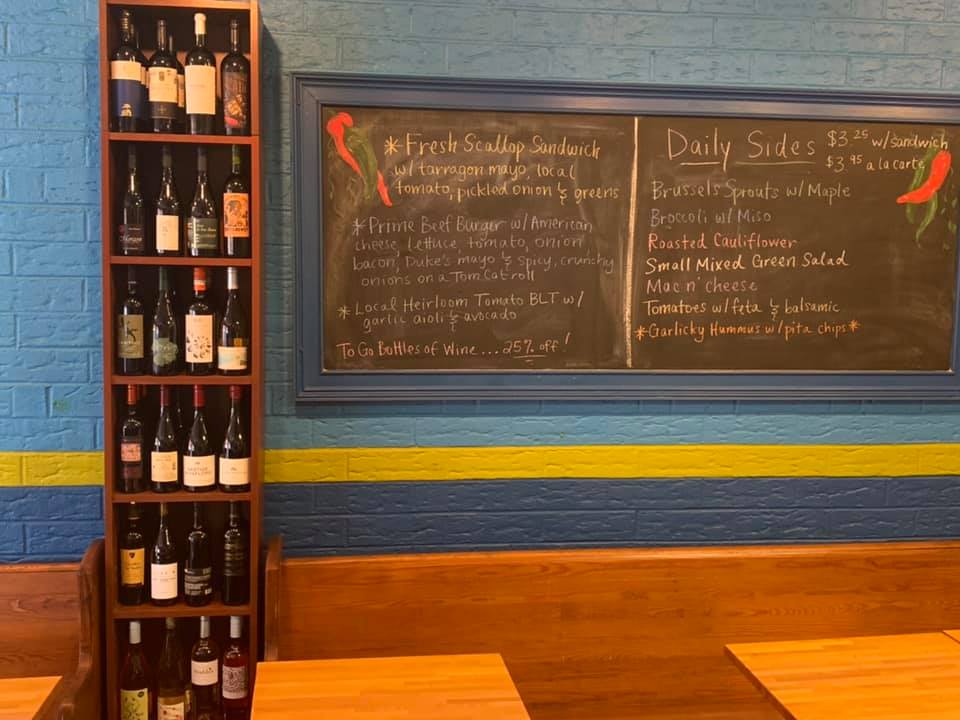 *Fresh Scallop Sandwich
w/ tarragon mayo, local
tomato, pickled onion & greens
*Prime Beef Burger w/ American
cheese, lettuce, tomato, onion
bacon, Duke's mayo & spicy, crunchy
onions on a Tom Cat roll
*Local Heirloom Tomato BLT w/
garlic aioli & avocado
To Go Bottles of Wine... 25% off!
Daily Sides
$3.25 w/sandwich
$3.95 a la carte
Brussels Sprouts w/ Maple
Broccoli w/ Miso
Roasted Cauliflower
Small Mixed Green Salad
Mac n' cheese
Tomatoes w/ feta & balsamic
*Garlicky Hummus w/ pita chips*